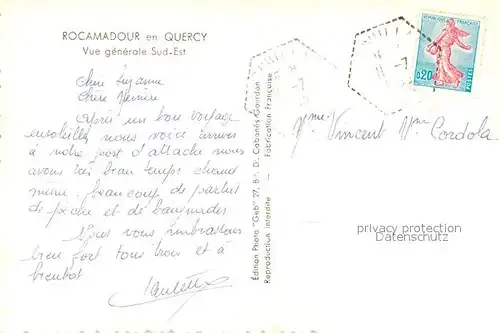 ROCAMADOUR en QUERCY
Vue générale Sud-Est
Chère Suzanne
Chère
Après un bon voyage
ensoleillé nous voici arrivés
à notre port d'attache nous
avons très beau temps chaud
même. beaucoup de parties
de pêche et de baignades
Nous vous embrassons
bien fort tous trois et à
bientôt
Edition Photo "Géb" 27, Bd. D. Cabanès Gourdon
Reproduction interdite — Fabrication Française
REPUBLIQUE FRANCAISE
0,20
POSTES
Mme Vincent Cordola
privacy protection
Datenschutz